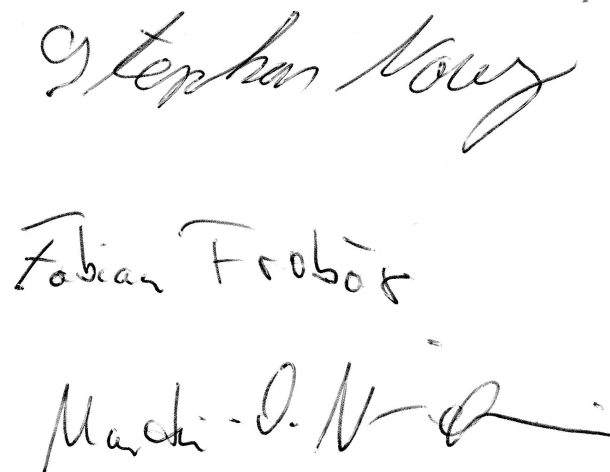 Stephan Nowy
Fabian Frobös
Martin